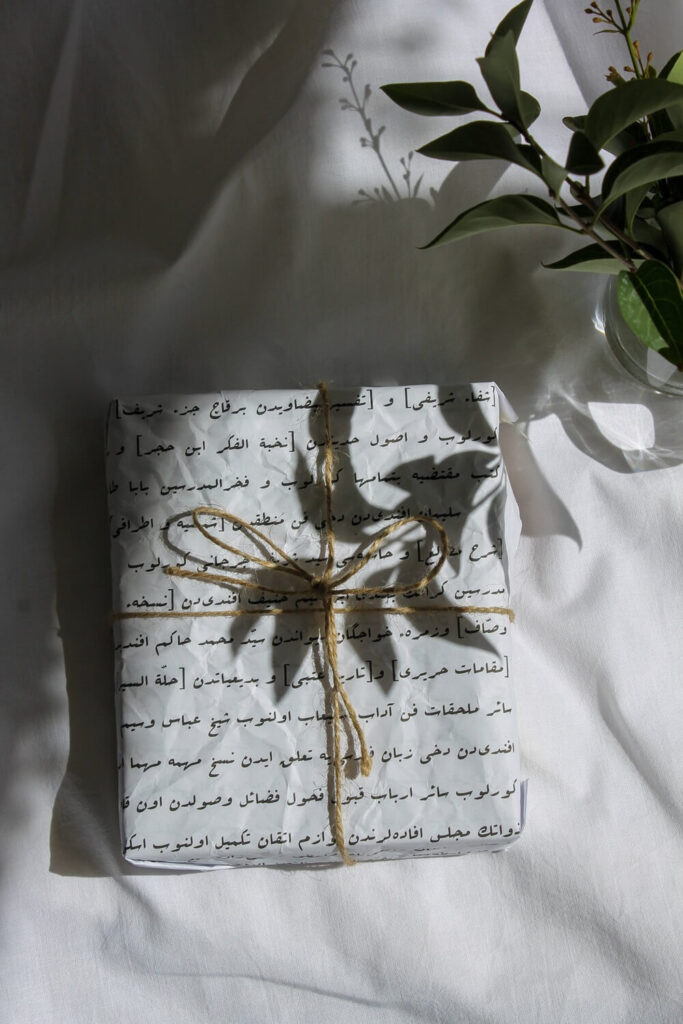 [شفاء شريفى] و [تفسير بيضاويدن برقاج جزء شريف]
كورلوب و اصول حديثدن [نخبة الفكر ابن حجر] و
كتب مقتضيه بتمامها كورلوب و فخرالمدرسين بابا
سليمان افندى‌دن دخى فن منطقدن [شمسيه و اطرافى]
[شرح مطالع] و سيد جرجانى كورلوب
مدرسين حنيف افندى‌دن [نسخه‌
وصّاف] وزمره‌ خواجگان ديواندن سيّد محمد حاكم
[مقامات حريرى] و[تاريخ عتبى] و بديعياتدن [حلّة
سائر ملحقات فن آداب اولنوب شيخ عباس وسيم
افندى‌دن دخى زبان فارسى‌يه تعلق ايدن نسخ مهمه مهما
كورلوب سائر ارباب قبول فحول فضائل وصولدن اون
ذواتك مجلس افاده‌لرندن لوازم اتقان تكميل اولنوب